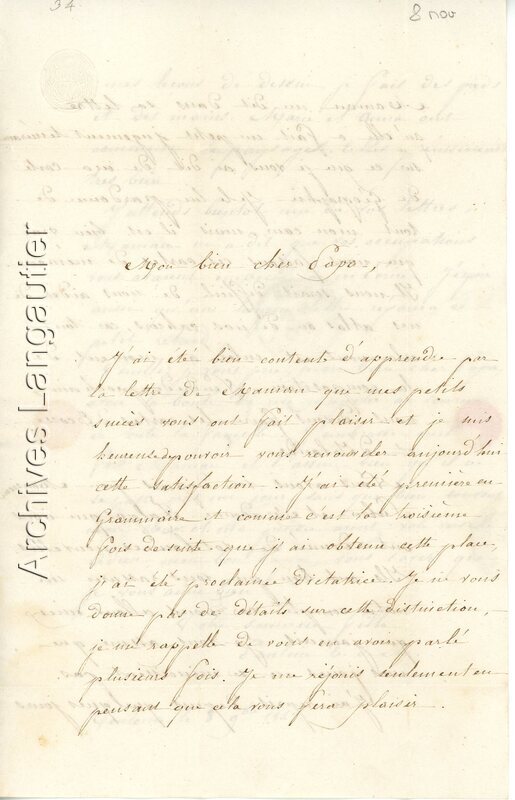 34
8 nov
Mon bien cher Papa,
J'ai été bien contente d'apprendre par
la lettre de Maman que mes petits
succès vous ont fait plaisir et je suis
heureuse de pouvoir vous renouveler aujourd'hui
cette satisfaction. J'ai été première en
Grammaire et comme c'est la troisième
fois de suite que j'ai obtenu cette place,
j'ai été proclamée dictatrice. Je ne vous
donne pas de détails sur cette distinction,
je me rappelle de vous en avoir parlé
plusieurs fois. Je me réjouis seulement en
pensant que cela vous fera plaisir.
Archives Langautier